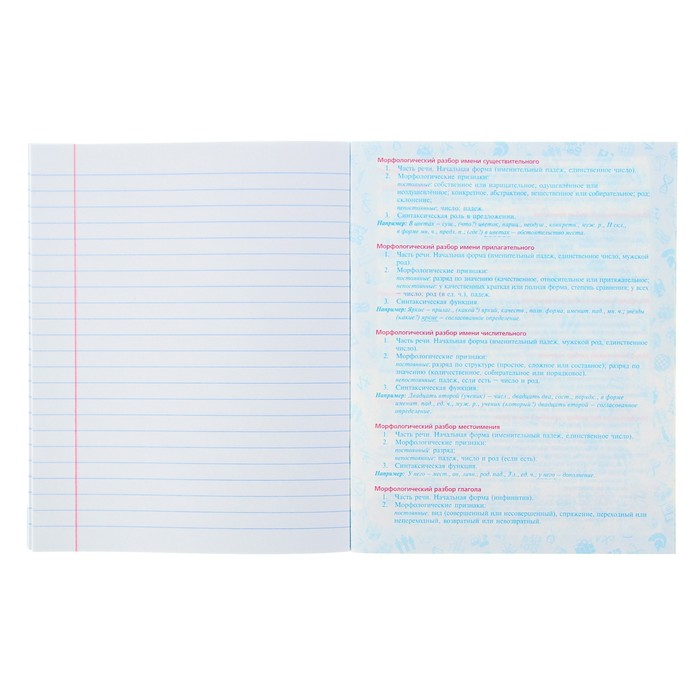 Морфологический разбор имени существительного
1. Часть речи. Начальная форма (именительный падеж, единственное число).
2. Морфологические признаки:
постоянные: собственное или нарицательное, одушевлённое или
неодушевлённое; конкретное, абстрактное, вещественное или собирательное; род;
склонение;
непостоянные: число, падеж.
3. Синтаксическая роль в предложении.
Например: В цветах — сущ., (что?) цветок, нариц., неодуш., конкретн., муж. р., II скл.,
в форме мн. ч., предл. п.; (где?) в цветах — обстоятельство места.
Морфологический разбор имени прилагательного
1. Часть речи. Начальная форма (именительный падеж, единственное число, мужской
род).
2. Морфологические признаки:
постоянные: разряд по значению (качественное, относительное или притяжательное);
непостоянные: у качественных краткая или полная форма, степень сравнения; у всех
— число, род (в ед. ч.), падеж.
3. Синтаксическая функция.
Например: Яркие — прилаг., (какой?) яркий, качеств., полн. форма, именит. пад., мн. ч.; звёзды
(какие?) яркие — согласованное определение.
Морфологический разбор имени числительного
1. Часть речи. Начальная форма (именительный падеж, мужской род, единственное
число).
2. Морфологические признаки:
постоянные: разряд по структуре (простое, сложное или составное); разряд по
значению (количественное, собирательное или порядковое);
непостоянные: падеж, если есть — число и род.
3. Синтаксическая функция.
Например: Двадцать второй (ученик) — числ., двадцать два, сост., порядк., в форме
именит. пад., ед. ч., муж. р., ученик (который?) двадцать второй — согласованное
определение.
Морфологический разбор местоимения
1. Часть речи. Начальная форма (именительный падеж, единственное число).
2. Морфологические признаки:
постоянный: разряд;
непостоянные: падеж, число и род (если есть).
3. Синтаксическая функция.
Например: У него — мест., он, личн., род. пад., 3 л., ед. ч.; у него — дополнение.
Морфологический разбор глагола
1. Часть речи. Начальная форма (инфинитив).
2. Морфологические признаки:
постоянные: вид (совершенный или несовершенный), спряжение, переходный или
непереходный, возвратный или невозвратный.